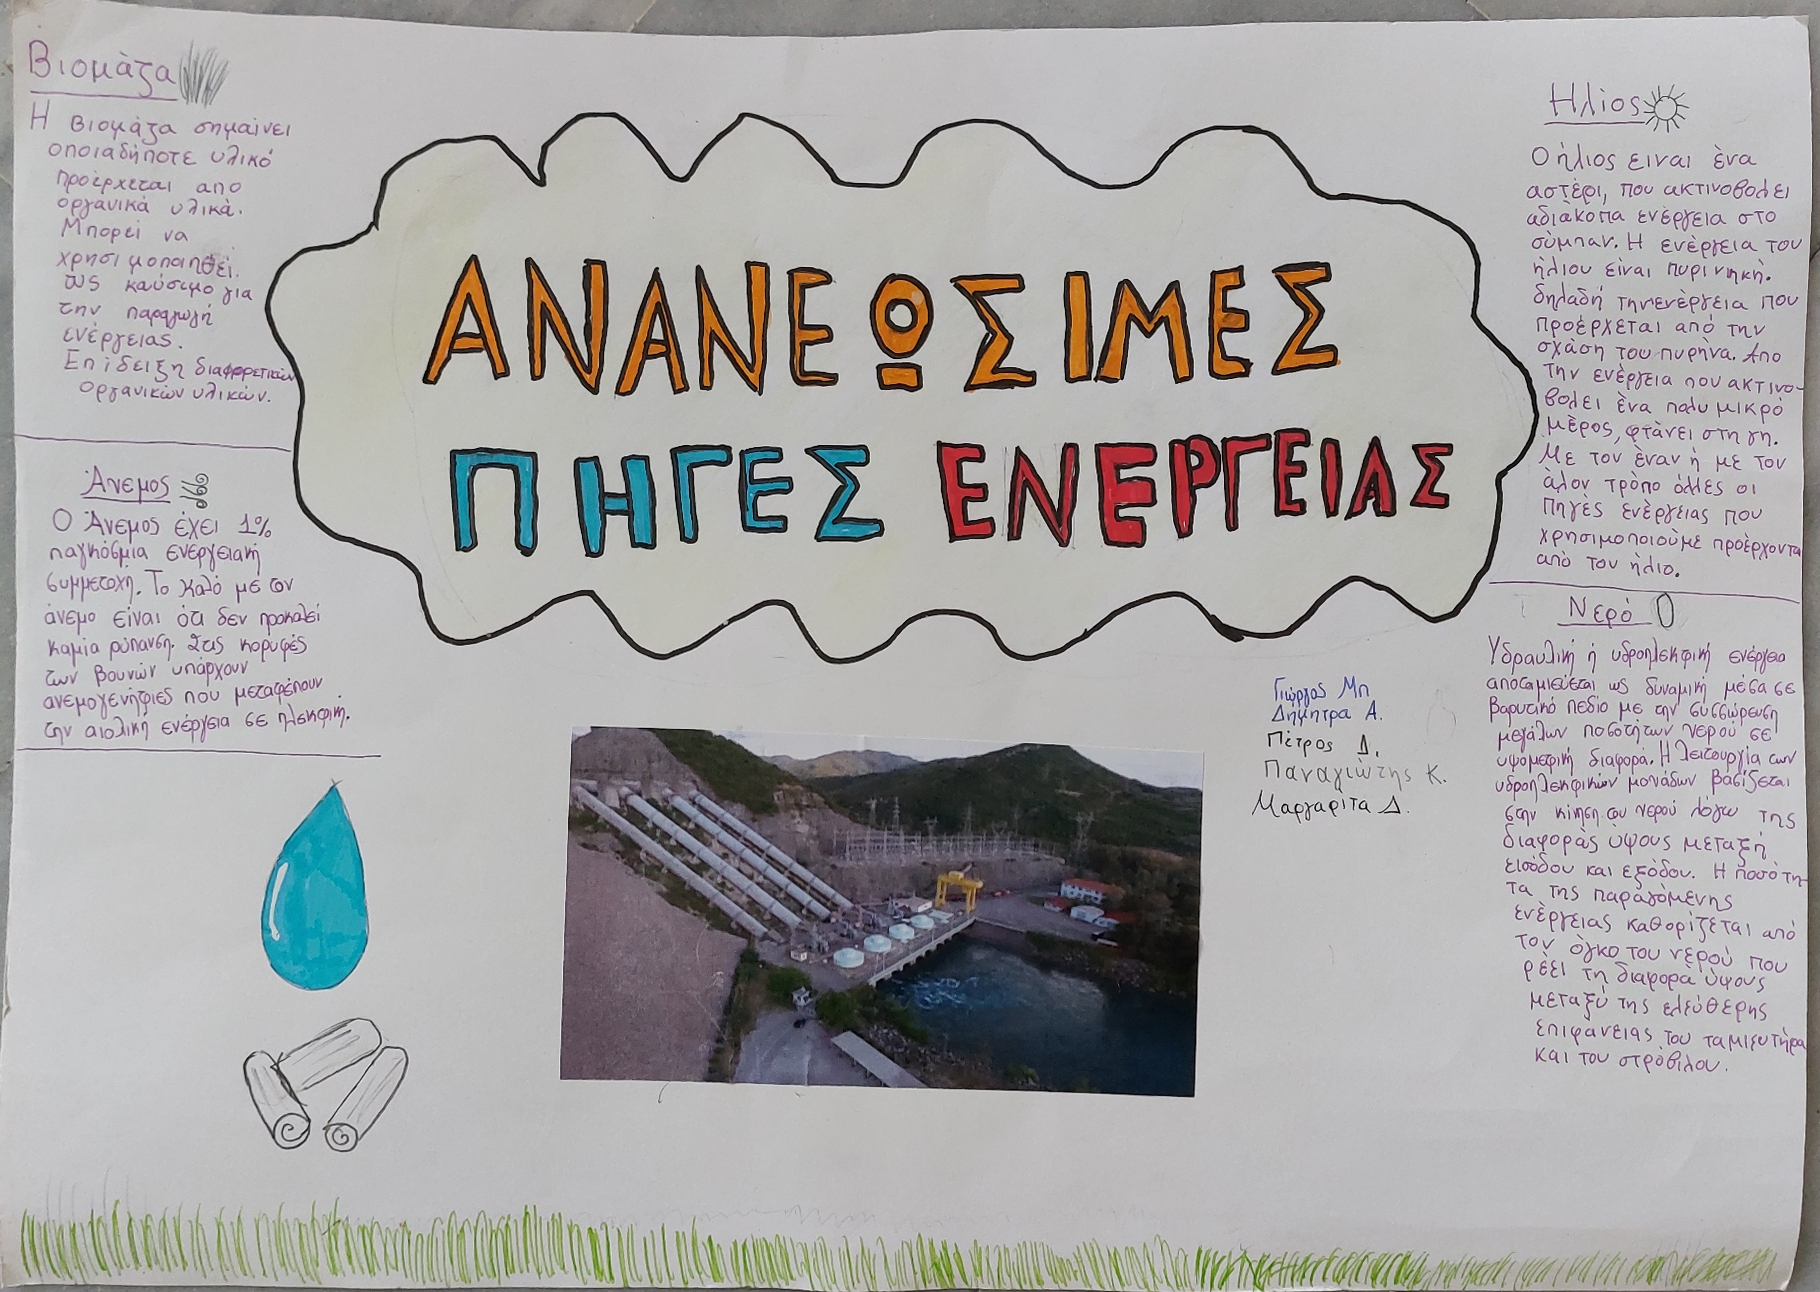 Βιομάζα
Η βιομάζα σημαίνει
οποιαδήποτε υλικό
προέρχεται απο
οργανικά υλικά.
Μπορεί να
χρησιμοποιηθεί.
ως καύσιμο για
την παραγωγή
ενέργειας.
Επίδειξη διαφορετικών
οργανικών υλικών.
Άνεμος
Ο Άνεμος έχει 1%
παγκόσμια ενεργειακή
συμμετοχή. Το καλό με τον
άνεμο είναι ότι δεν προκαλεί
καμία ρύπανση. Στις κορυφές
των βουνών υπάρχουν
ανεμογενήτριες που μεταφέπουν
την αιολική ενέργεια σε ηλεκτρική.
ΑΝΑΝΕΩΣΙΜΕΣ
ΠΗΓΕΣ ΕΝΕΡΓΕΙΑΣ
Γιώργος Μπ
Δήμητρα Α.
Πέτρος Δ.
Παναγιώτης Κ.
Μαργαρίτα Δ.
Ηλιος
Ο ήλιος ειναι ένα
αστέρι, που ακτινοβολεί
αδιάκοπα ενέργεια στο
σύμπαν. Η ενέργεια του
ήλιου είναι πυρινηκή.
δηλαδή την ενέργεια που
προέρχεται από την
σχάση του πυρήνα. Απο
την ενέργεια που ακτινο-
βολεί ένα πολυ μικρό
μέρος, φτάνει στη γη.
Με τον έναν ή με τον
άλον τρόπο όλες οι
Πηγές ενέργειας που
χρησιμοποιούμε προέρχοντα
από τον ήλιο.
Νερό
Υδραυλική ή υδροηλεκτρική ενέργεια
αποταμιεύεται ως δυναμική μέσα σε
βαρυτικό πεδίο με την συσσώρευση
μεγάλων ποσοτήτων νερού σε
υψομετρική διαφορά. Η λειτουργία των
υδροηλεκτρικών μονάδων βασίζεται
στην κίνηση του νερού λόγω της
διαφοράς ύψους μεταξή
εισόδου και εξόδου. Η ποσότη-
τα της παραγόμενης
ενέργειας καθορίζεται από
τον όγκο του νερού που
ρέει τη διαφορά ύψους
μεταξύ της ελεύθερης
επιφάνειας του ταμιευτήρα
και του στρόβιλου.